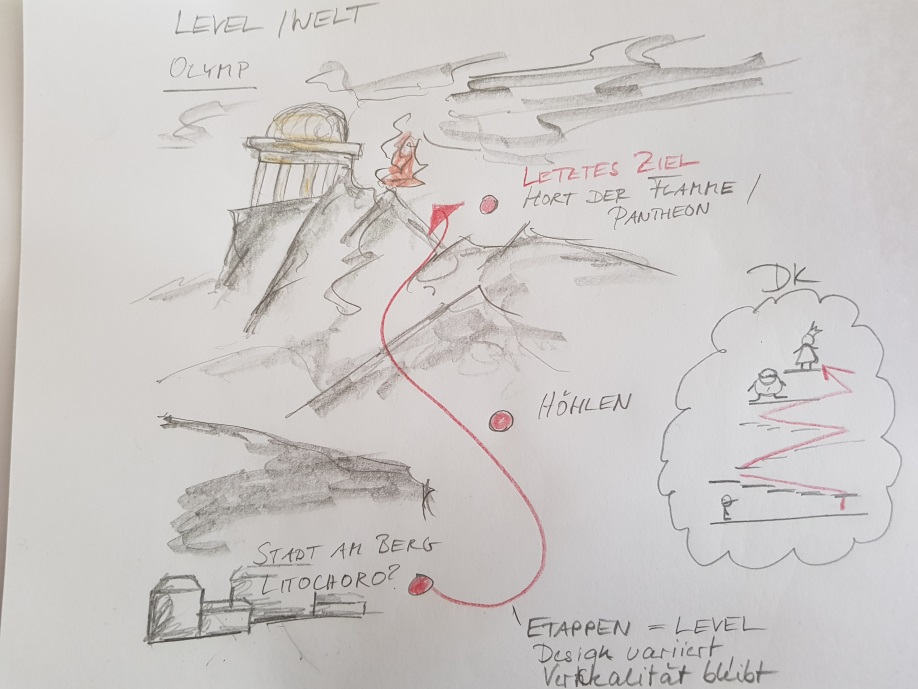 LEVEL / WELT
OLYMP
LETZTES ZIEL
HORT DER FLAMME /
PANTHEON
DK
HÖHLEN
STADT AM BERG
LITOCHORO?
ETAPPEN = LEVEL
Design variiert
Vertikalität bleibt